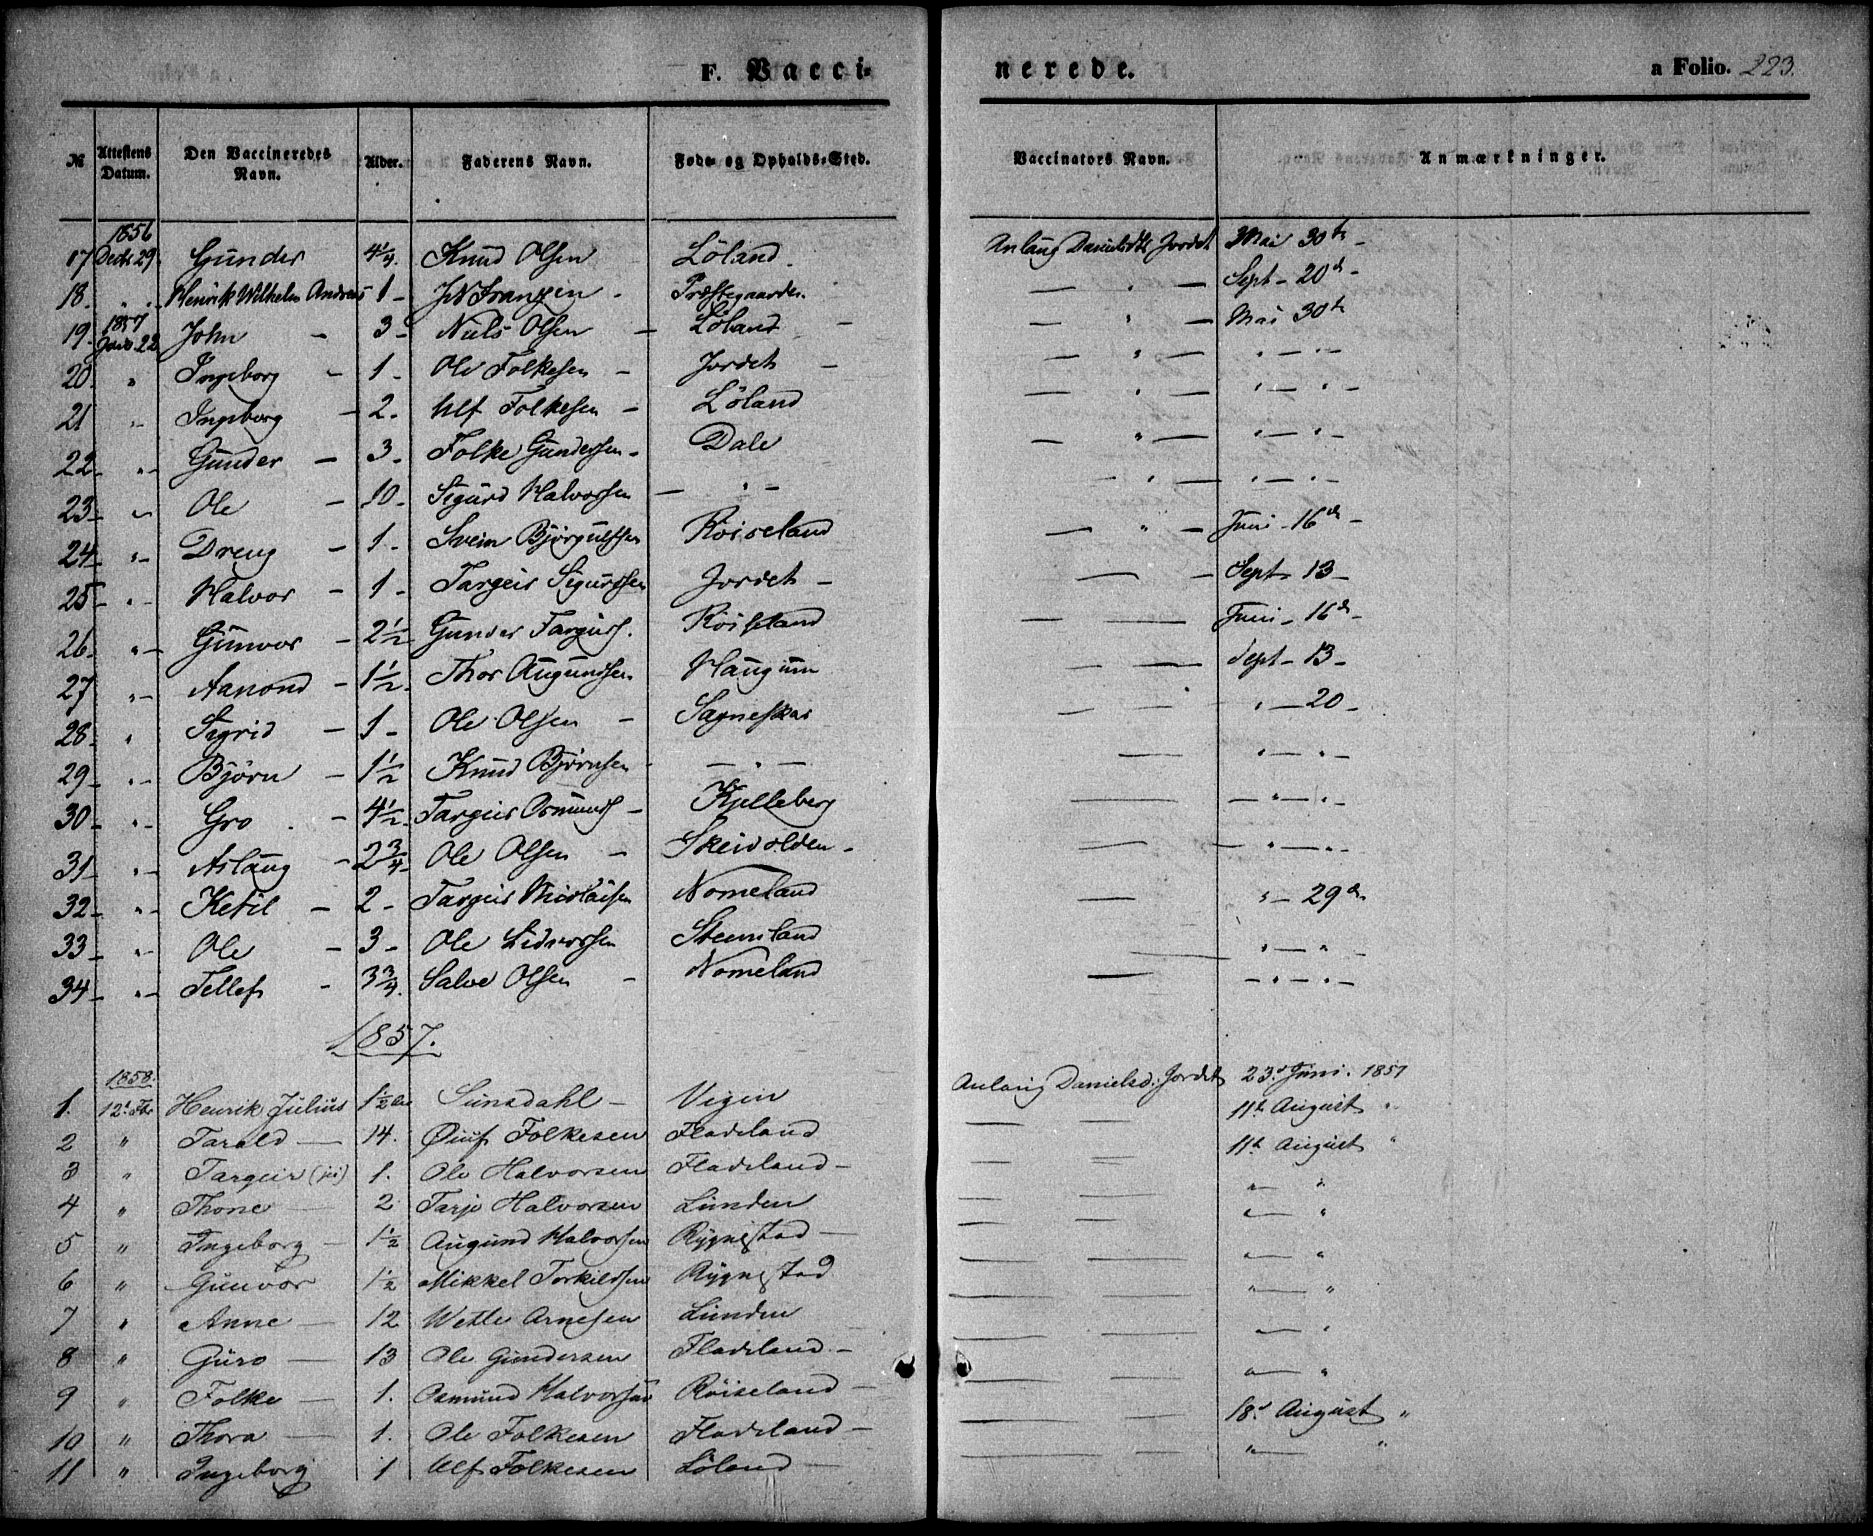 F. Vacci=
nerede.
a Folio. 223.
№ Attestens Datum. Den Vaccineredes Navn. Alder. Faderens Navn. Føde= og Opholds=Sted. Vaccinators Navn. Anmærkninger.
1856
17 Decbr 29. Gunder 4 1/4. Knud Olsen Löland. Anlaug Danielsdtr Jordet Mai 30te -
18. " " Henrik Wilhelm Andreas 1 - Præstegaarden. — " — Sept - 20de -
1857
19. 22 John - 3 - Niels Olsen - Löland - — " — Mai 30te
20. " Ingeborg - 1 - Ole Folkesen - Jordet - — " — " — " -
21 " Ingeborg - 2. Ulf Folkesen - Löland — " — " — " -
22 - " - Gunder - 3 - Folke Gundersen - Dale — " — " — " -
23 - " Ole - 10 - Sigurd Halvorsen — " - " — " — " -
24 - " - Dreng - 1 - Svein Björgulfsen Röiseland — " — Juni - 16de -
25 - " - Halvor - 1 - Targeir Sigurdsen Jordet - — - Sept - 13 -
26 - " - Gunvor - 2 1/2 Gunder Targeirs. Röiseland — — Juni - 16de -
27 " - Aanond - 1 1/2. Thor Augundsen Haugum — — Sept - 13 -
28 - " Sigrid - 1 - Ole Olsen - Sagneskar — — " — 20 -
29 - " - Björn - 1 1/2 Knud Björnsen - — " — — " — " -
30 - " - Gro - 4 1/2 - Targeir Osmunds - Kjelleberg — — " — " -
31 - " - Aslaug - 2 3/4 - Ole Olsen - Skeivolden - — - " — " -
32 - " - Ketil - 2 - Targeir Nicolaisen Nomeland — " - 29de
33 - " - Ole - 3 - Ole Lidvorsen Steensland — " — " -
34 - " - Tellef - 3 3/4. Salve Olsen - Nomeland — - " - " -
1857.
1858.
1. 12te Fbr Henrik Julius 1 1/2 Sunsdahl - Vegen Anlaug Danielsd: Jordet 23d Juni. 1857
2 " Tarald — 14. Folkesen Fladeland — — 11te August "
3 " Targeir 1. Ole Halvorsen Fladeland - — — 11te August "
4 " Thone — 2 Tarje Halvorsen Lunden — — " — "
5 " Ingeborg - 1 1/2 Augund Halvorsen Rygnestad — — — " — "
6 " Gunvor 1 1/2 Mikkel Torkildsen Rygnestad — — " — "
7 " Anne — 12 Wetle Arnesen Lunden — — " — "
8 " Guro — 13 Ole Gundersen Fladeland - — — " — "
9 " Folke — 1. Osmund Halvorsen Röiseland - — — " — "
10 " Thora — 1. Ole Folkesen Fladeland - — — 18de August "
11 " Ingeborg 1 Ulf Folkesen Löland — — — " — "